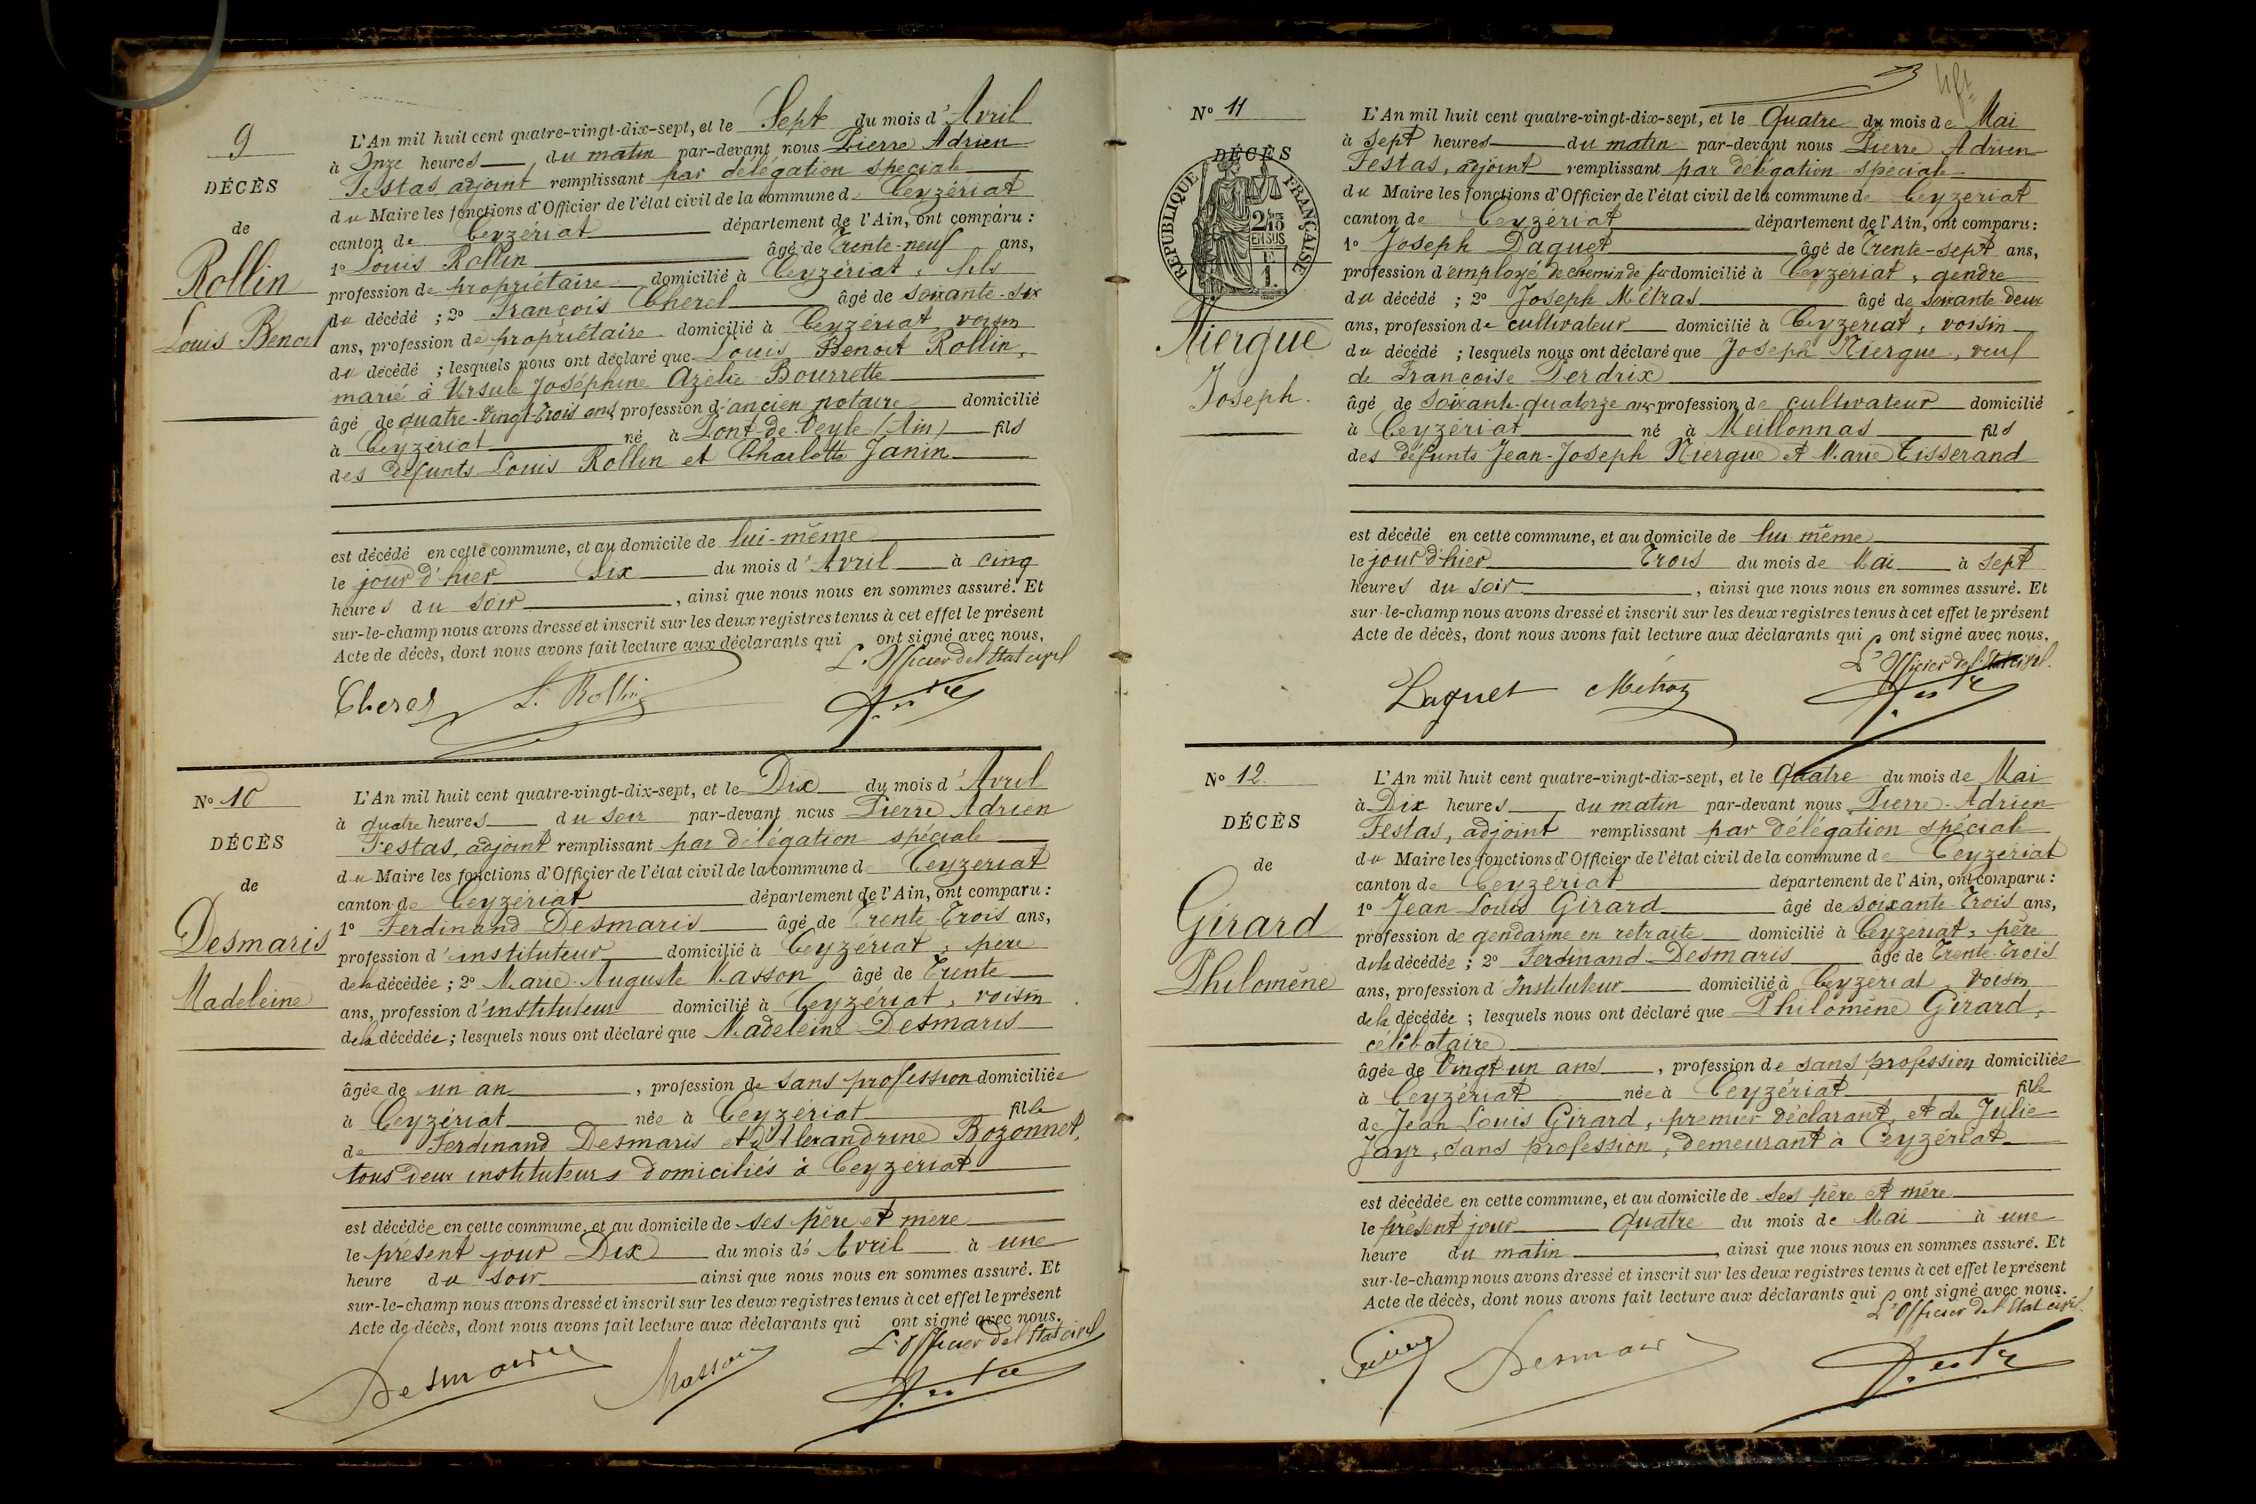 9
DÉCÈS
de
Rollin
Louis Benoit
L'An mil huit cent quatre-vingt-dix-sept, et le Sept du mois d'Avril
à Onze heures du matin par-devant nous Pierre Adrien
Festas adjoint remplissant par délégation spéciale
du Maire les fonctions d'Officier de l'état civil de la commune de Ceyzériat
canton de Ceyzériat département de l'Ain, ont comparu :
1º Louis Rollin âgé de Trente-neuf ans,
profession de propriétaire domicilié à Ceyzériat, fils
du décédé ; 2º François Cherel âgé de soixante-six
ans, profession de propriétaire domicilié à Ceyzériat, voisin
du décédé ; lesquels nous ont déclaré que Louis Benoit Rollin,
marié à Ursule Joséphine Azélie Bourrette
âgé de quatre-vingt-trois ans, profession d'ancien notaire domicilié
à Ceyzériat né à Pont-de-Veyle (Ain) fils
des défunts Louis Rollin et Charlotte Janin
est décédé en cette commune, et au domicile de lui-même
le jour d'hier Six du mois d'Avril à cinq
heures du soir, ainsi que nous nous en sommes assuré. Et
sur-le-champ nous avons dressé et inscrit sur les deux registres tenus à cet effet le présent
Acte de décès, dont nous avons fait lecture aux déclarants qui ont signé avec nous.
L'Officier de l'Etat civil
Cherel L. Rollin
Nº 10
DÉCÈS
de
Desmaris
Madeleine
L'An mil huit cent quatre-vingt-dix-sept, et le Dix du mois d'Avril
à quatre heures du soir par-devant nous Pierre Adrien
Festas, adjoint remplissant par délégation spéciale
du Maire les fonctions d'Officier de l'état civil de la commune de Ceyzériat
canton de Ceyzériat département de l'Ain, ont comparu :
1º Ferdinand Desmaris âgé de Trente-Trois ans,
profession d'instituteur domicilié à Ceyzériat, père
de la décédée ; 2º Marie Auguste Masson âgé de Trente
ans, profession d'instituteur domicilié à Ceyzériat, voisin
de la décédée ; lesquels nous ont déclaré que Madeleine Desmaris
âgée de un an, profession de sans profession domiciliée
à Ceyzériat née à Ceyzériat fille
de Ferdinand Desmaris et d'Alexandrine Bozonnet,
tous deux instituteurs domiciliés à Ceyzériat
est décédée en cette commune, et au domicile de ses père et mère
le présent jour Dix du mois d'Avril à une
heure du soir ainsi que nous nous en sommes assuré. Et
sur-le-champ nous avons dressé et inscrit sur les deux registres tenus à cet effet le présent
Acte de décès, dont nous avons fait lecture aux déclarants qui ont signé avec nous.
L'Officier de l'Etat civil
Desmaris Masson
Nº 11
DÉCÈS
RÉPUBLIQUE FRANÇAISE
2/10
EN SUS
1F
Niergue
Joseph.
L'An mil huit cent quatre-vingt-dix-sept, et le Quatre du mois de Mai
à sept heures du matin par-devant nous Pierre Adrien
Festas, adjoint remplissant par délégation spéciale
du Maire les fonctions d'Officier de l'état civil de la commune de Ceyzériat
canton de Ceyzériat département de l'Ain, ont comparu :
1º Joseph Daguet âgé de Trente-sept ans,
profession d'employé de chemin de fer domicilié à Ceyzériat, gendre
du décédé ; 2º Joseph Métras âgé de soixante-deux
ans, profession de cultivateur domicilié à Ceyzériat, voisin
du décédé ; lesquels nous ont déclaré que Joseph Niergue, veuf
de Françoise Perdrix
âgé de soixante-quatorze ans profession de cultivateur domicilié
à Ceyzériat né à Meillonnas fils
des défunts Jean-Joseph Niergue et Marie Tisserand
est décédé en cette commune, et au domicile de lui même
le jour d'hier Trois du mois de Mai à sept
heures du soir, ainsi que nous nous en sommes assuré. Et
sur-le-champ nous avons dressé et inscrit sur les deux registres tenus à cet effet le présent
Acte de décès, dont nous avons fait lecture aux déclarants qui ont signé avec nous.
L'Officier de l'Etat civil.
Daguet Métraz
Nº 12
DÉCÈS
de
Girard
Philomène
L'An mil huit cent quatre-vingt-dix-sept, et le Quatre du mois de Mai
à Dix heures du matin par-devant nous Pierre Adrien
Festas, adjoint remplissant par délégation spéciale
du Maire les fonctions d'Officier de l'état civil de la commune de Ceyzériat
canton de Ceyzériat département de l'Ain, ont comparu :
1º Jean Louis Girard âgé de soixante-Trois ans,
profession de gendarme en retraite domicilié à Ceyzériat, père
de la décédée ; 2º Ferdinand Desmaris âgé de Trente-Trois
ans, profession d'Instituteur domicilié à Ceyzériat, voisin
de la décédée ; lesquels nous ont déclaré que Philomène Girard,
célibataire
âgée de Vingt un ans, profession de sans profession domiciliée
à Ceyzériat née à Ceyzériat fille
de Jean Louis Girard, premier déclarant, et de Julie
Jayr, sans profession, demeurant à Ceyzériat
est décédée en cette commune, et au domicile de ses père et mère
le présent jour Quatre du mois de Mai à une
heure du matin, ainsi que nous nous en sommes assuré. Et
sur-le-champ nous avons dressé et inscrit sur les deux registres tenus à cet effet le présent
Acte de décès, dont nous avons fait lecture aux déclarants qui ont signé avec nous.
L'Officier de l'Etat civil.
Desmaris